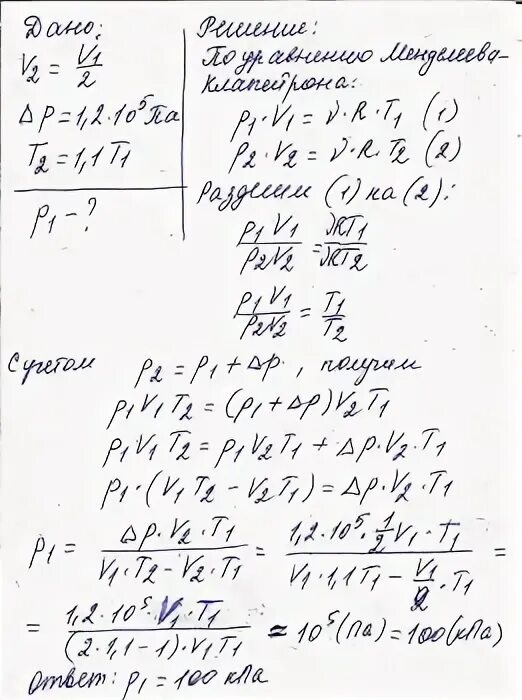 Дано:
V₂ = V₁/2
Δp = 1,2·10⁵ Па
T₂ = 1,1 T₁
p₁ – ?
Решение:
По уравнению Менделеева-
Клапейрона:
p₁·V₁ = ν·R·T₁ (1)
p₂·V₂ = ν·R·T₂ (2)
Разделим (1) на (2):
p₁V₁/p₂V₂ = νRT₁/νRT₂
p₁V₁/p₂V₂ = T₁/T₂
С учетом p₂ = p₁ + Δp, получим
p₁V₁T₂ = (p₁ + Δp)V₂T₁
p₁V₁T₂ = p₁V₂T₁ + Δp·V₂·T₁
p₁·(V₁T₂ – V₂T₁) = Δp·V₂·T₁
p₁ = Δp·V₂·T₁/(V₁·T₂ – V₂·T₁) = 1,2·10⁵·½V₁·T₁/(V₁·1,1T₁ – V₁/2·T₁) =
= 1,2·10⁵·V₁·T₁/((2·1,1–1)·V₁T₁) = 10⁵(Па) = 100(кПа)
Ответ: p₁ = 100 кПа